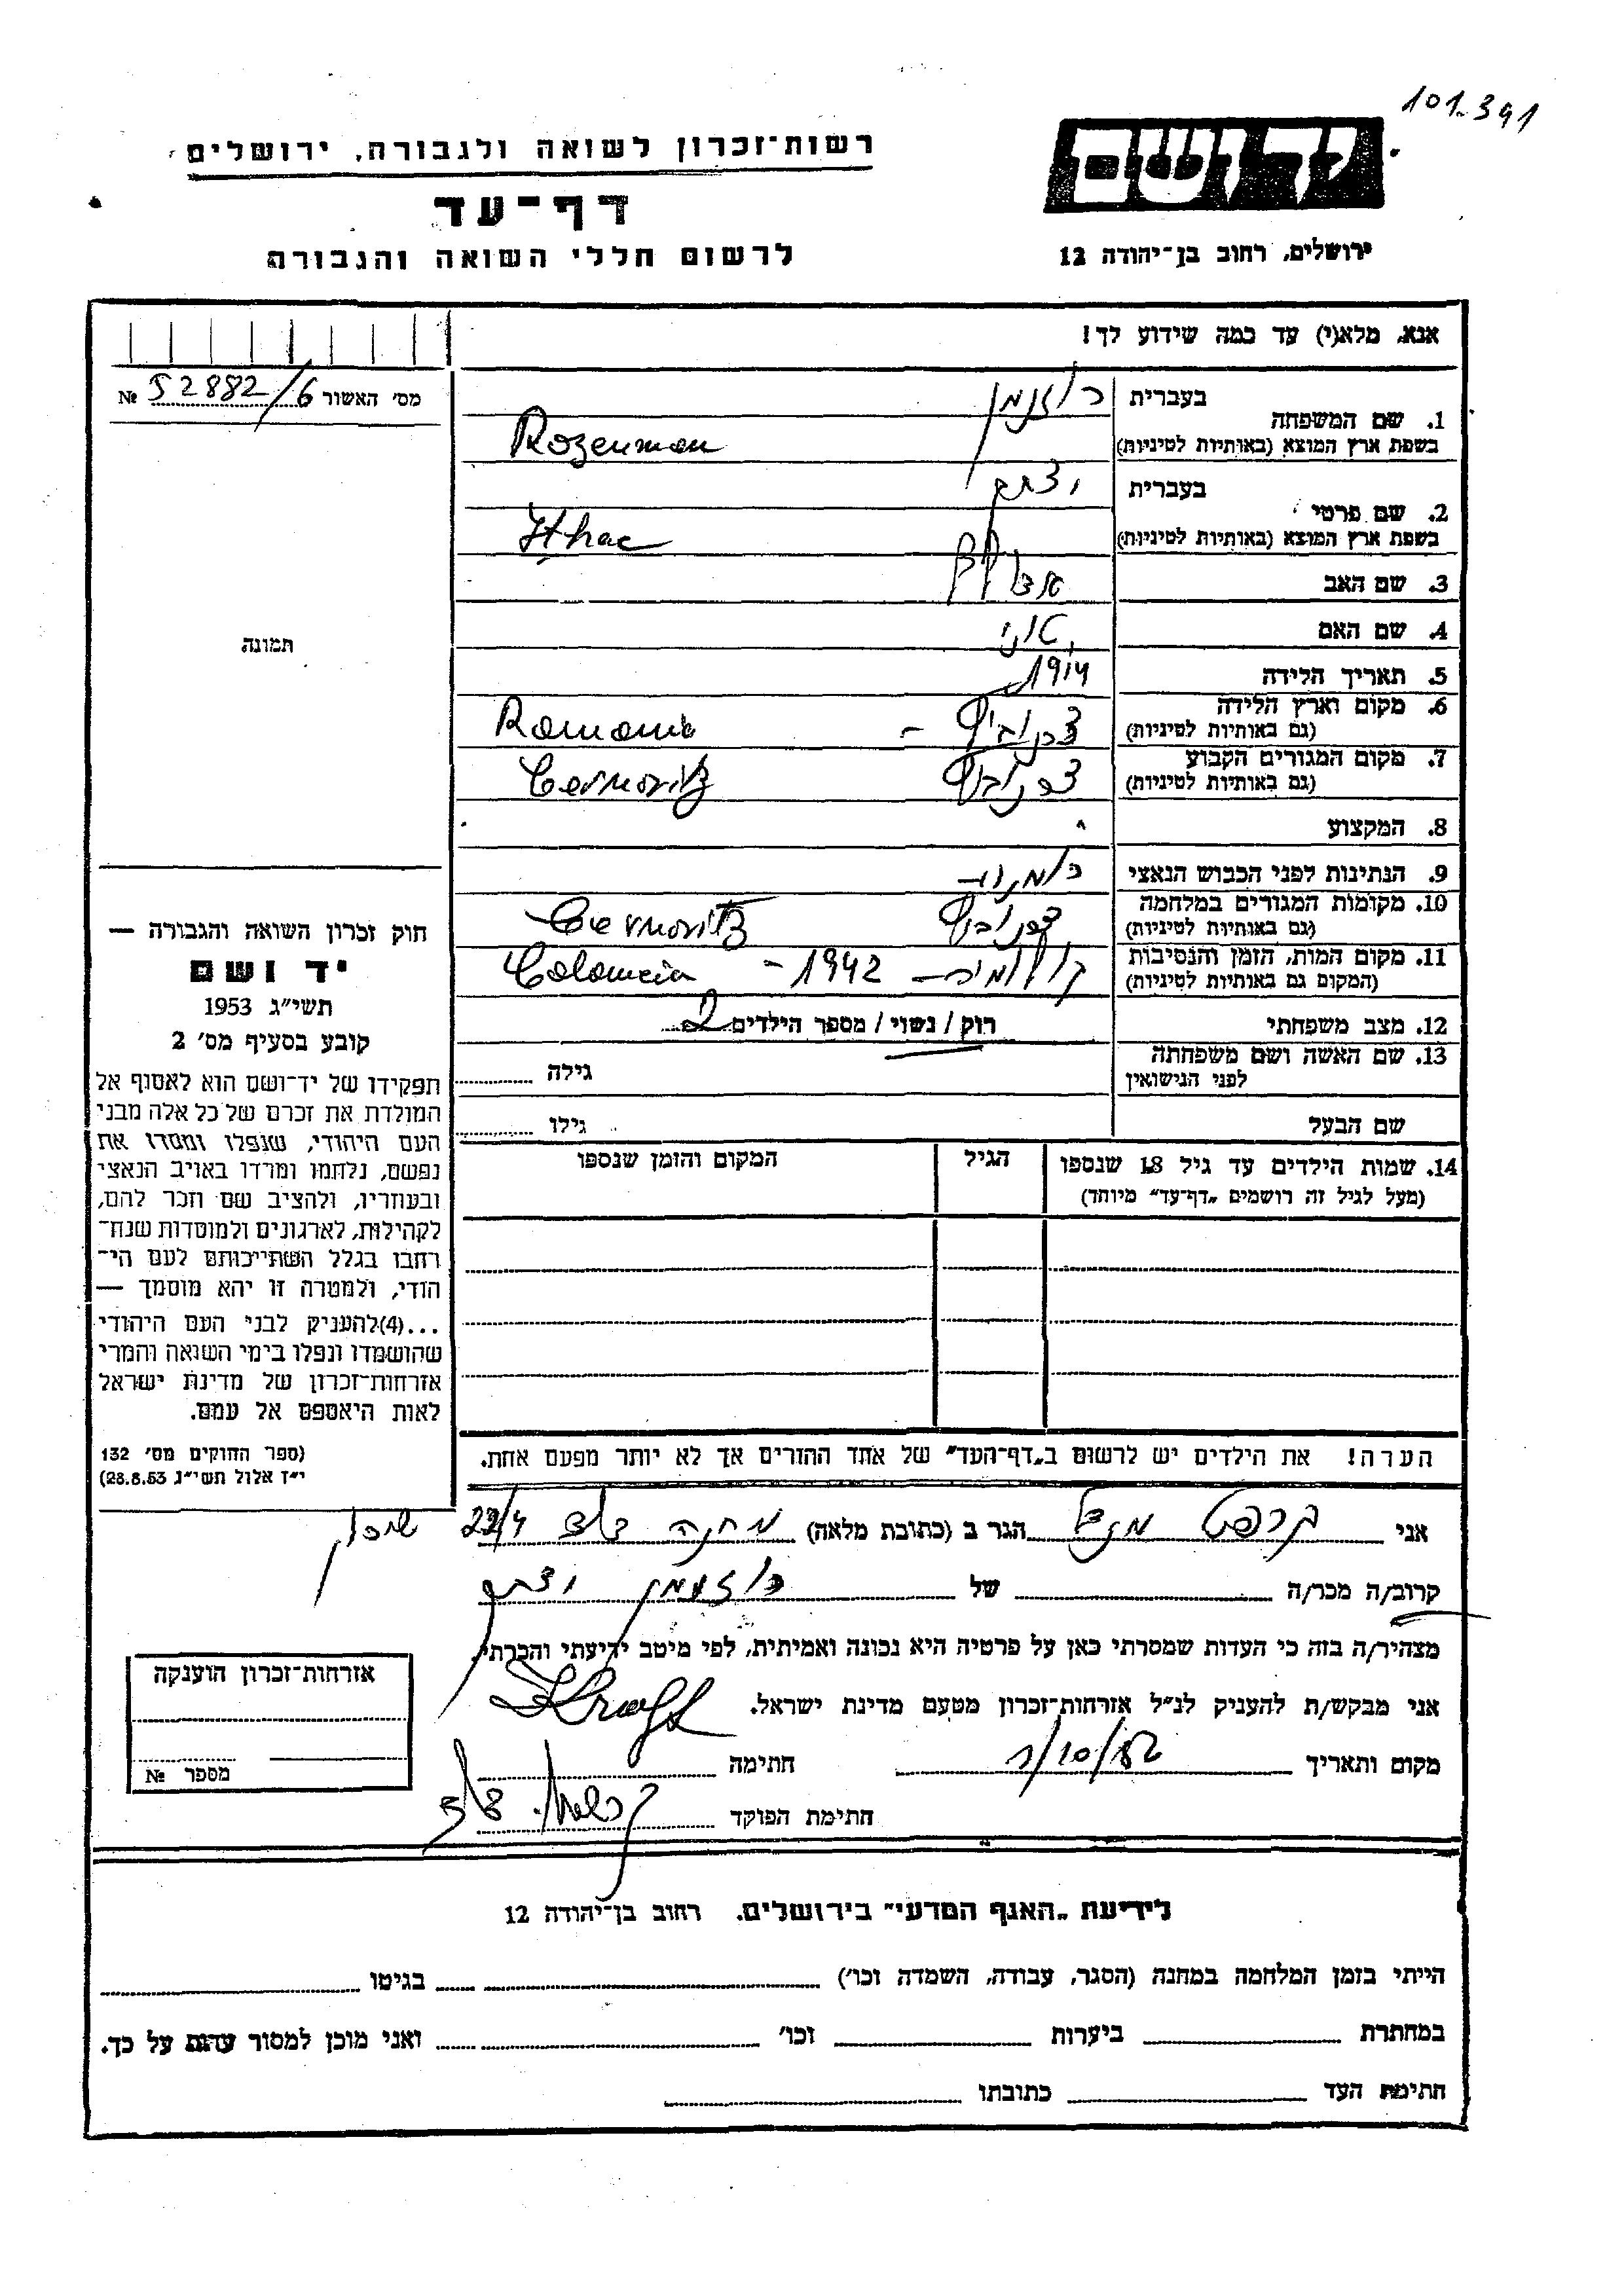 101.391
רשות־זכרון לשואה ולגבורה, ירושלים
יד ושם
דף־עד
ירושלים, רחוב בן־יהודה 12
לרשום חללי השואה והגבורה
אנא, מלא(י) עד כמה שידוע לך!
מס׳ האשור 52882/6 №
1. שם המשפחה בעברית רוזנמן
בשפת ארץ המוצא (באותיות לטיניות) Rozenman
2. שם פרטי בעברית יצחק
בשפת ארץ המוצא (באותיות לטיניות) Ithac
3. שם האב
4. שם האם
5. תאריך הלידה 1914
6. מקום וארץ הלידה צרנוביץ – Romania
(גם באותיות לטיניות)
7. מקום המגורים הקבוע צרנוביץ Cernovitz
(גם באותיות לטיניות)
8. המקצוע
9. הנתינות לפני הכבוש הנאצי רומנית
10. מקומות המגורים במלחמה צרנוביץ Cernovitz
(גם באותיות לטיניות)
11. מקום המות, הזמן והנסיבות – 1942 – Colomeia
(המקום גם באותיות לטיניות)
12. מצב משפחתי רוק / נשוי / מספר הילדים 2
13. שם האשה ושם משפחתה גילה
לפני הנישואין
שם הבעל גילו
14. שמות הילדים עד גיל 18 שנספו הגיל המקום והזמן שנספו
(מעל לגיל זה רושמים „דף־עד״ מיוחד)
הערה! את הילדים יש לרשום ב„דף־העד״ של אחד ההורים אך לא יותר מפעם אחת.
תמונה
חוק זכרון השואה והגבורה —
יד ושם
תשי״ג 1953
קובע בסעיף מס׳ 2
תפקידו של יד־ושם הוא לאסוף אל
המולדת את זכרם של כל אלה מבני
העם היהודי, שנפלו ומסרו את
נפשם, נלחמו ומרדו באויב הנאצי
ובעוזריו, ולהציב שם וזכר להם,
לקהילות, לארגונים ולמוסדות שנח־
רחבו בגלל השתייכותם לעם הי־
הודי, ולמטרה זו יהא מוסמך —
...(4) להעניק לבני העם היהודי
שהושמדו ונפלו בימי השואה והמרי
אזרחות־זכרון של מדינת ישראל
לאות היאספם אל עמם.
(ספר החוקים מס׳ 132
י״ז אלול תשי״ג 28.8.53)
אני קרפט הגר ב (כתובת מלאה) מחנה 22/4
קרוב/ה מכר/ה של רוזנמן יצחק
מצהיר/ה בזה כי העדות שמסרתי כאן על פרטיה היא נכונה ואמיתית, לפי מיטב ידיעתי והכרתי.
אני מבקש/ת להעניק לנ״ל אזרחות־זכרון מטעם מדינת ישראל.
מקום ותאריך חתימה
חתימת הפוקד
אזרחות־זכרון הוענקה
מספר №
לידיעת „האגף המדעי״ בירושלים, רחוב בן־יהודה 12
הייתי בזמן המלחמה במחנה (הסגר, עבודה, השמדה וכו׳) בגיטו
במחתרת ביערות וכו׳ ואני מוכן למסור עדות על כך.
חתימת העד כתובתו